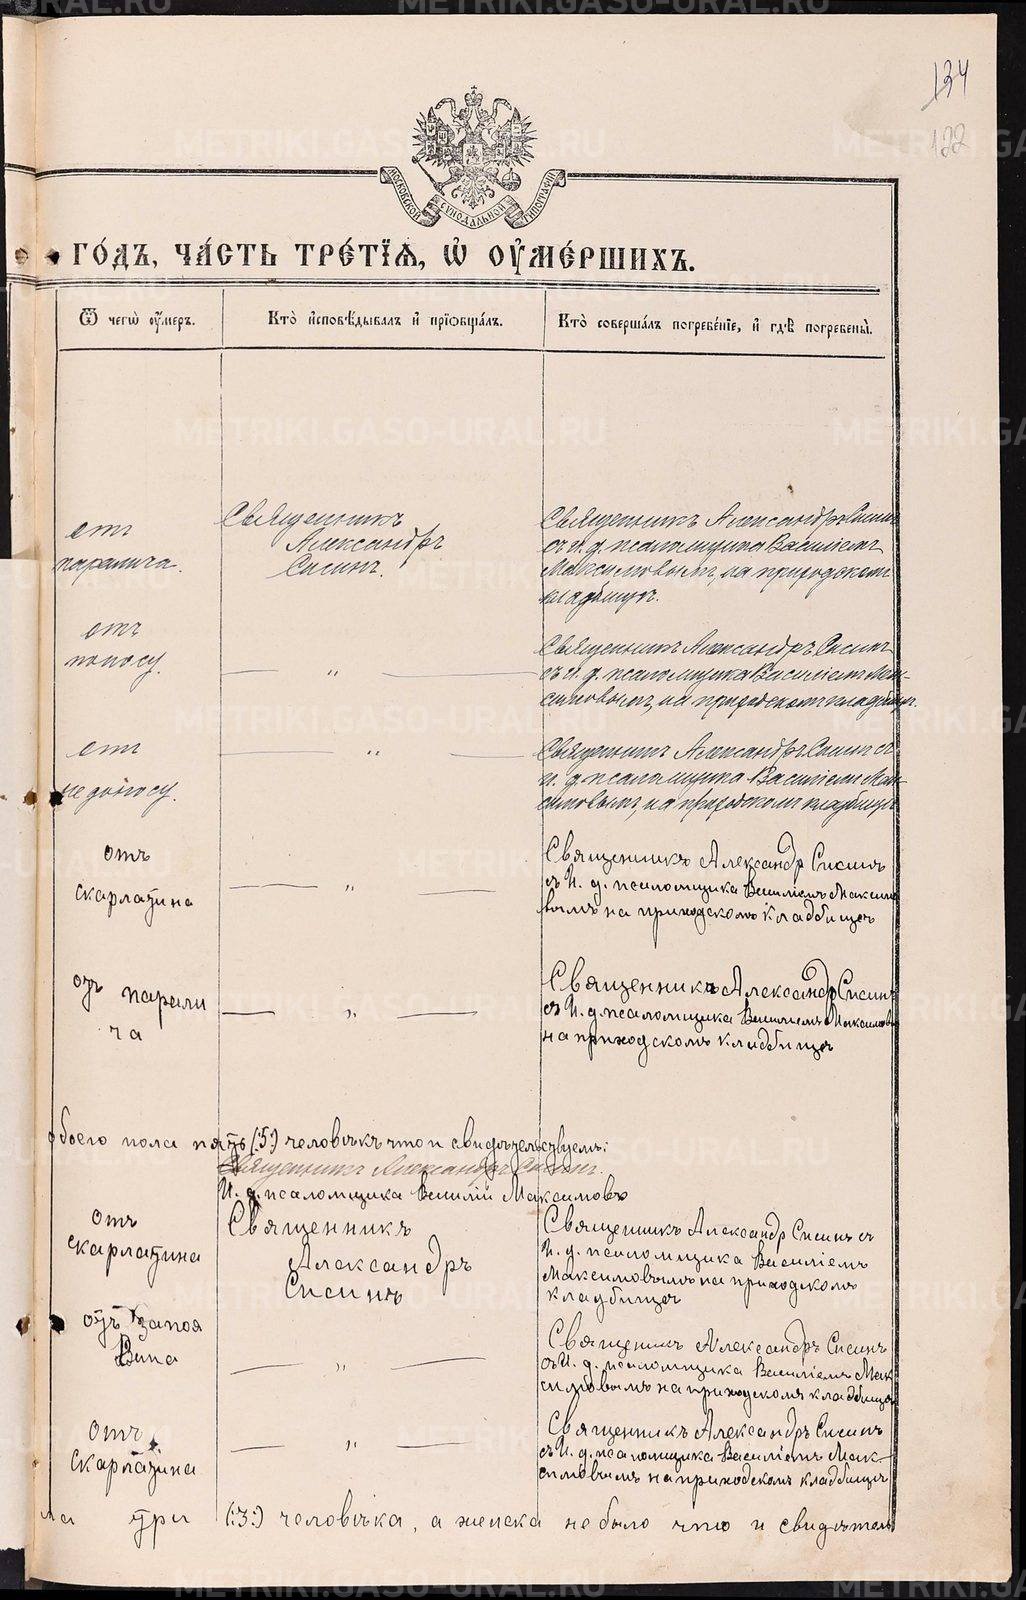 METRIKI.GASO-URAL.RU
134
122
МОСКОВСКОЙ СѴНОДАЛЬНОЙ ТИПОГРАФІИ
ГО́ДЪ, ЧА́СТЬ ТРЕ́ТІѦ, Ѽ ОУ҆МЕ́РШИХЪ.
Ѿ чегѡ̀ оу҆́меръ.
Кто̀ и҆сповѣ́дывалъ и҆ прїѻбща́лъ.
Кто̀ соверша́лъ погребе́нїе, и҆ гдѣ̀ погребены̀.
отъ
паралича.
Священникъ
Александръ
Сисинъ.
Священникъ Александръ Сисинъ
съ и. д. псаломщика Василіемъ
Максимовымъ, на приходскомъ
кладбищѣ.
отъ
поносу.
— „ —
Священникъ Александръ Сисинъ
съ и. д. псаломщика Василіемъ Мак-
симовымъ, на приходскомъ кладбищѣ.
отъ
недоносу.
— „ —
Священникъ Александръ Сисинъ съ
и. д. псаломщика Василіемъ Мак-
симовымъ, на приходскомъ кладбищѣ
отъ
скарлатина
— „ —
Священникъ Александр Сисинъ
съ И. д. псаломщика Василіемъ Максимо
вымъ на приходскомъ кладбищѣ
отъ парали
ча
— „ —
Священникъ Александр Сисинъ
съ И. д. псаломщика Василіемъ Максимовы
на приходскомъ кладбищѣ
обоего пола пять (:5:) человѣкъ что и свидѣтельствуемъ:
Священникъ Александръ Сисинъ.
И. д. псаломщика Василій Максимовъ
отъ
скарлатина
Священникъ
Александръ
Сисинъ
Священникъ Александр Сисинъ съ
И. д. псаломщика Василіемъ
Максимовымъ на приходскомъ
кладбищѣ
отъ запоя
Вина
— „ —
Священикъ Александръ Сисинъ
съ И. д. псаломщика Василіемъ Мак
симовымъ на приходскомъ кладбищѣ
отъ
скарлатина
— „ —
Священникъ Александръ Сисинъ
съ И. д. псаломщика Василіемъ Мак-
симовымъ на приходскомъ кладбищѣ
ла три (:3:) человѣка, а женска не было что и свидѣтель